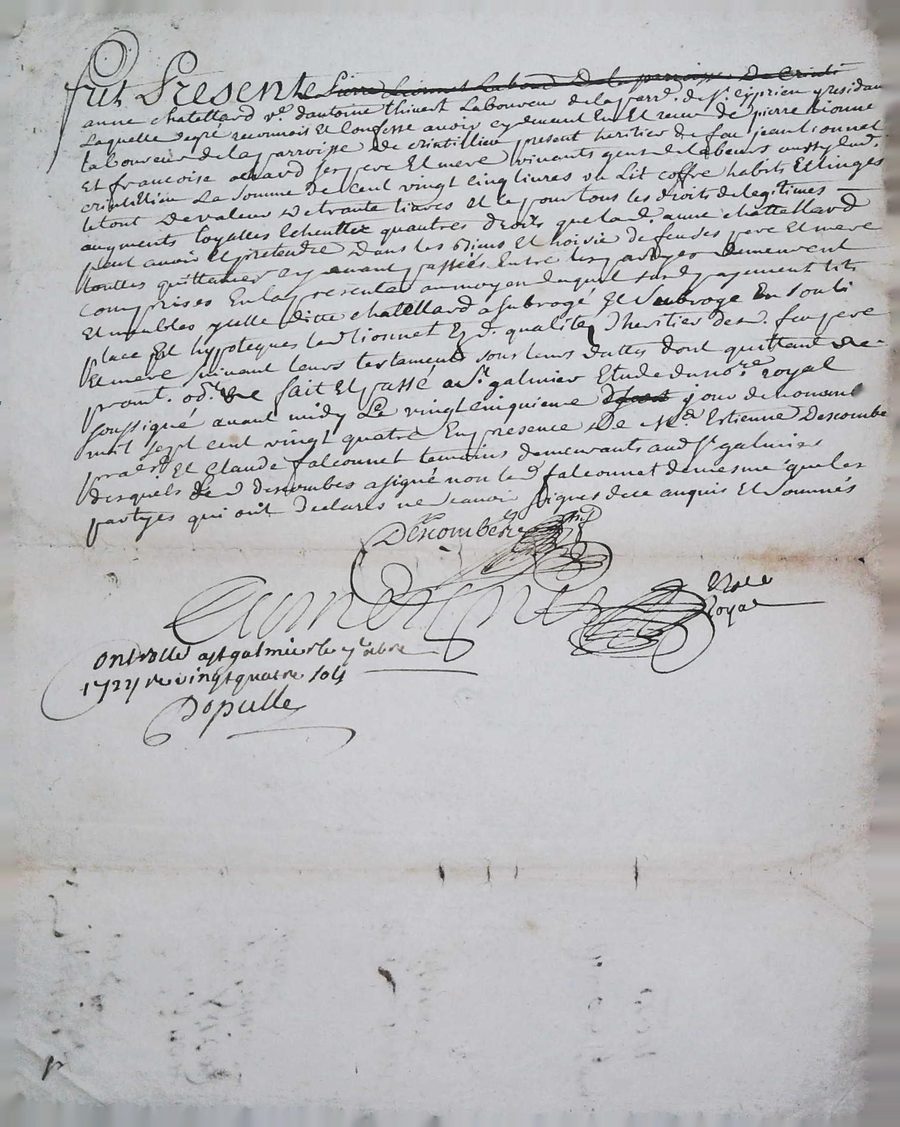 fut Presente Pierre Lionnet Labour De la parroisse De Crinti
anne chatellard vᵉ. d'antoine thivent Laboureur de la parrᵉ. de Sᵗ. Ciprien y residan
Laquelle degré reconnois Et Confesse avoir cy devant Eu Et receu de pierre Lionne
Laboureur de la parroisse de crintillieu present heritier de feu jean Lionnet
Et francoise ses pere Et mere vivants gens de labeurs aud
crintillieu La somme de Cent vingt cinq livres un Lit coffre habits Et linges
le tout De valeur De trante livres et ce pour tous les droits de legitimes
augments Loyalles Echeutte quautres droits que lad. anne chattellard
peut avoir Et pretendre Dans les biens Et hoirie de feu ses pere Et mere
touttes quittances cy devant passées Entre les partyes demeurent
comprises En la presente au moyen duquel surd payement lits
Et meubles yelle ditte chatellard a subrogé Et Subroge En son li
place Et hypoteques led Lionnet Esd. qualités d'heritier desd. feu pere
Et mere suivant leurs testaments sous leurs dattes dont quittant
promt. obᵗ. fait Et passé a Sᵗ galmier Etude du noʳᵉ royal
soussigné avant midy Le vingt cinquieme jour de novamb
mil sept cent vingt quatre En presence De Mᵉ Estienne Descombe
Et Claude falconnet temoins demeurants aud Sᵗ galmier
desquels led descombes a signé non led falconnet de mesme que les
partyes qui ont declares ne scavoir signer de ce anquis Et Sommés
Descombes
royal
Controlle a Sᵗ galmier le
1724 re vingt quatre sols